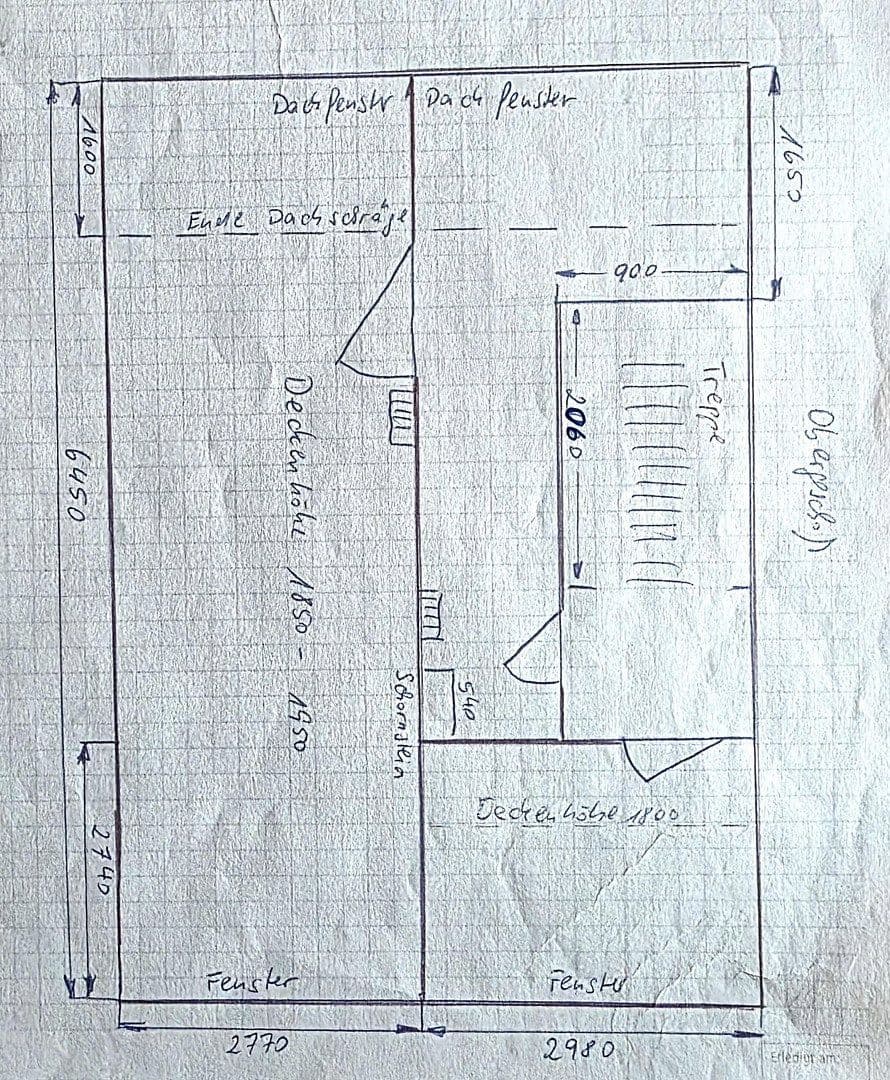 Dachfenstr
Dach fenster
1600
1650
Ende Dachschräge
900
Treppe
2060
Obergesch.)
Deckenhöhe 1850 - 1950
6450
540
Schornstein
Deckenhöhe 1800
2740
Fenster
Fenster
2770
2980
Erledigt am: